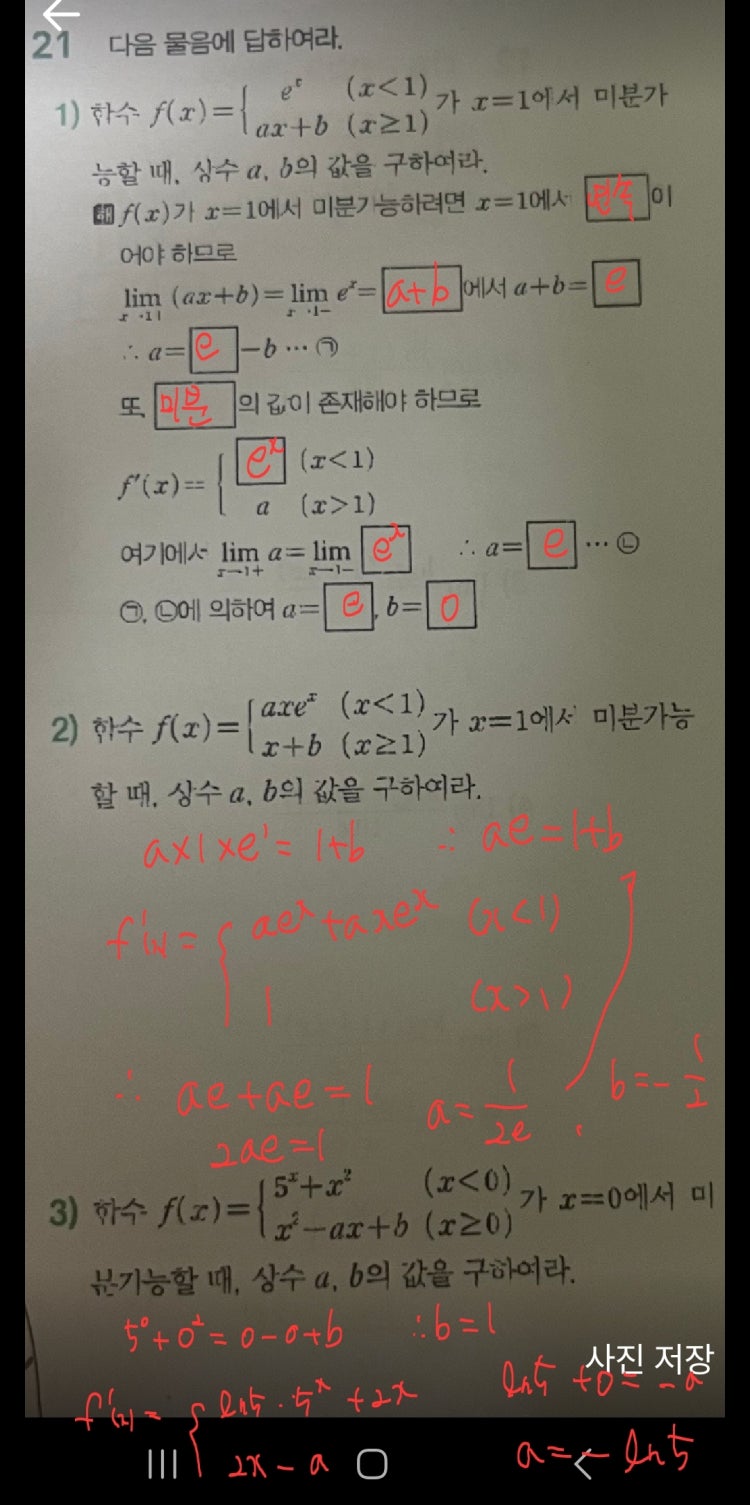 21 다음 물음에 답하여라.
1) 함수 f(x)={ e^x (x<1) 가 x=1에서 미분가
ax+b (x≥1)
능할 때, 상수 a, b의 값을 구하여라.
解 f(x)가 x=1에서 미분가능하려면 x=1에서 연속 이
어야 하므로
lim x→1+ (ax+b)= lim x→1- e^x= a+b 에서 a+b= e
∴ a= e -b … ㉠
또, 미분 의 값이 존재해야 하므로
f'(x)={ e^x (x<1)
a (x>1)
여기에서 lim x→1+ a= lim x→1- e^x ∴ a= e … ㉡
㉠, ㉡에 의하여 a= e , b= 0
2) 함수 f(x)={ axe^x (x<1) 가 x=1에서 미분가능
x+b (x≥1)
할 때, 상수 a, b의 값을 구하여라.
a×1×e^1=1+b ∴ ae=1+b
f'(x)={ ae^x+axe^x (x<1)
1 (x>1)
∴ ae+ae=1
2ae=1 a=1/2e , b=-1/2
3) 함수 f(x)={ 5^x+x^2 (x<0) 가 x=0에서 미
x^2-ax+b (x≥0)
분가능할 때, 상수 a, b의 값을 구하여라.
5^0+0^2=0-0+b ∴b=1
사진 저장
f'(x)={ ln5·5^x+2x ln5+0=-a
2x-a a=-ln5